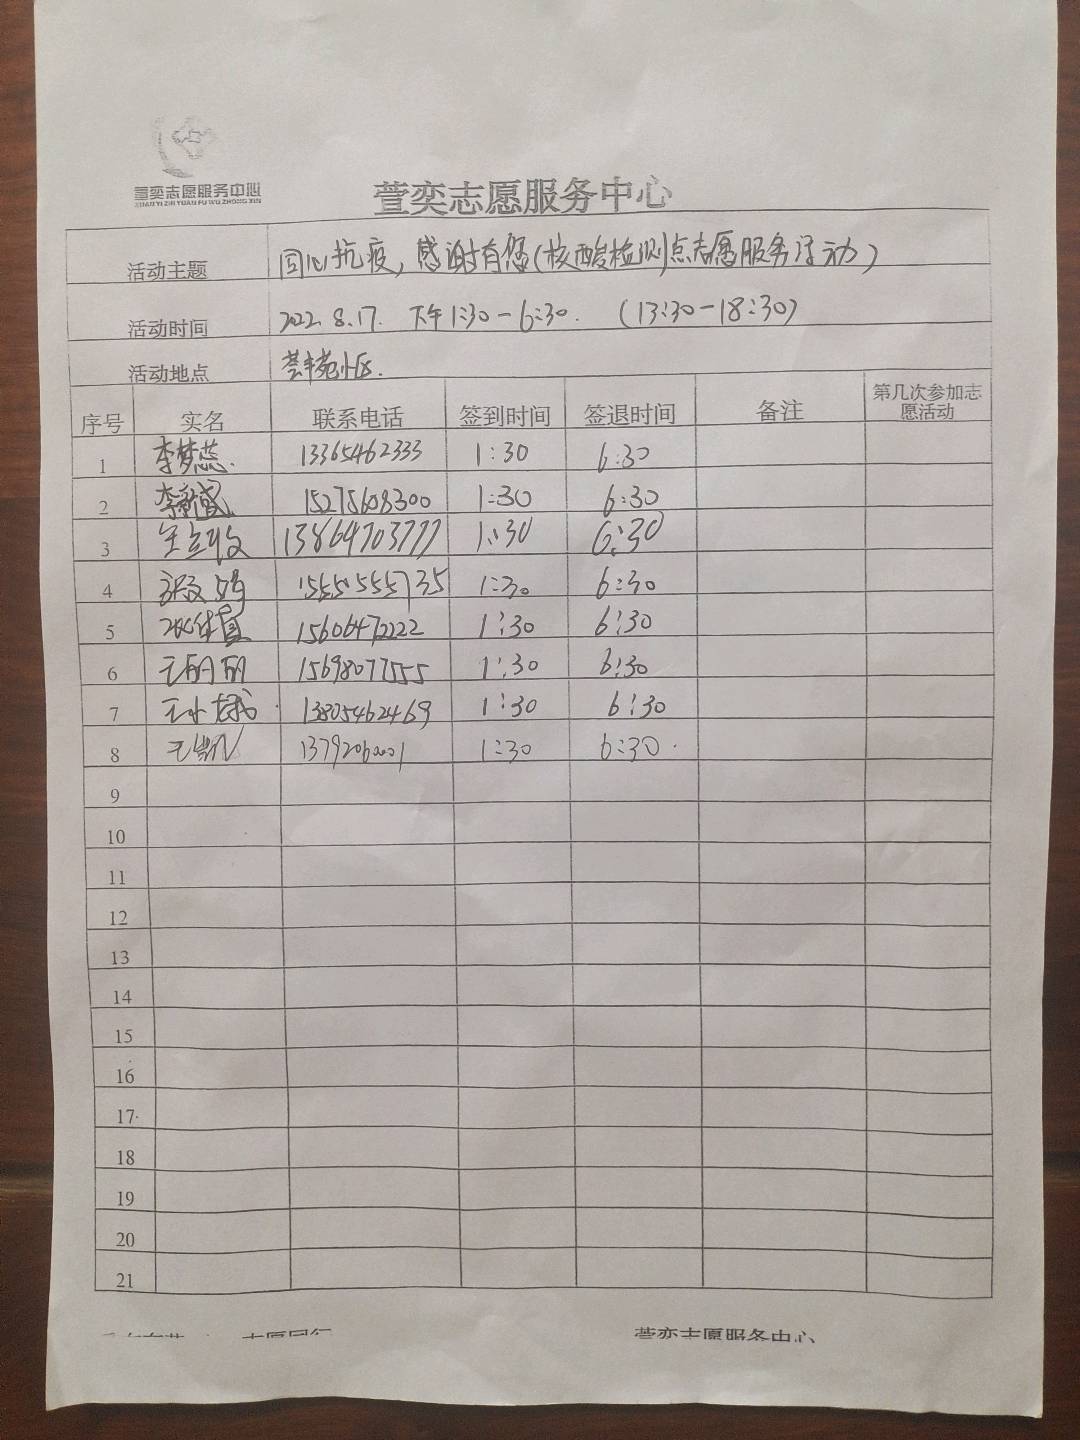 萱奕志愿服务中心
XUAN YI ZHI YUAN FU WU ZHONG XIN
萱奕志愿服务中心
活动主题 同心抗疫，感谢有您（核酸检测点志愿服务活动）
活动时间 2022.8.17. 下午1:30-6:30. (13:30-18:30)
活动地点 荟丰苑小区.
序号 实名 联系电话 签到时间 签退时间 备注 第几次参加志愿活动
1 李梦蕊. 13365462333 1:30 6:30
2 15275608300 1:30 6:30
3 13864703777 1:30 6:30
4 15551555735 1:30 6:30
5 15606472222 1:30 6:30
6 王丽丽 15698077555 1:30 6:30
7 13805462469 1:30 6:30
8 王凯 13792060001 1:30 6:30.
9
10
11
12
13
14
15
16
17
18
19
20
21
志愿同行 萱奕志愿服务中心